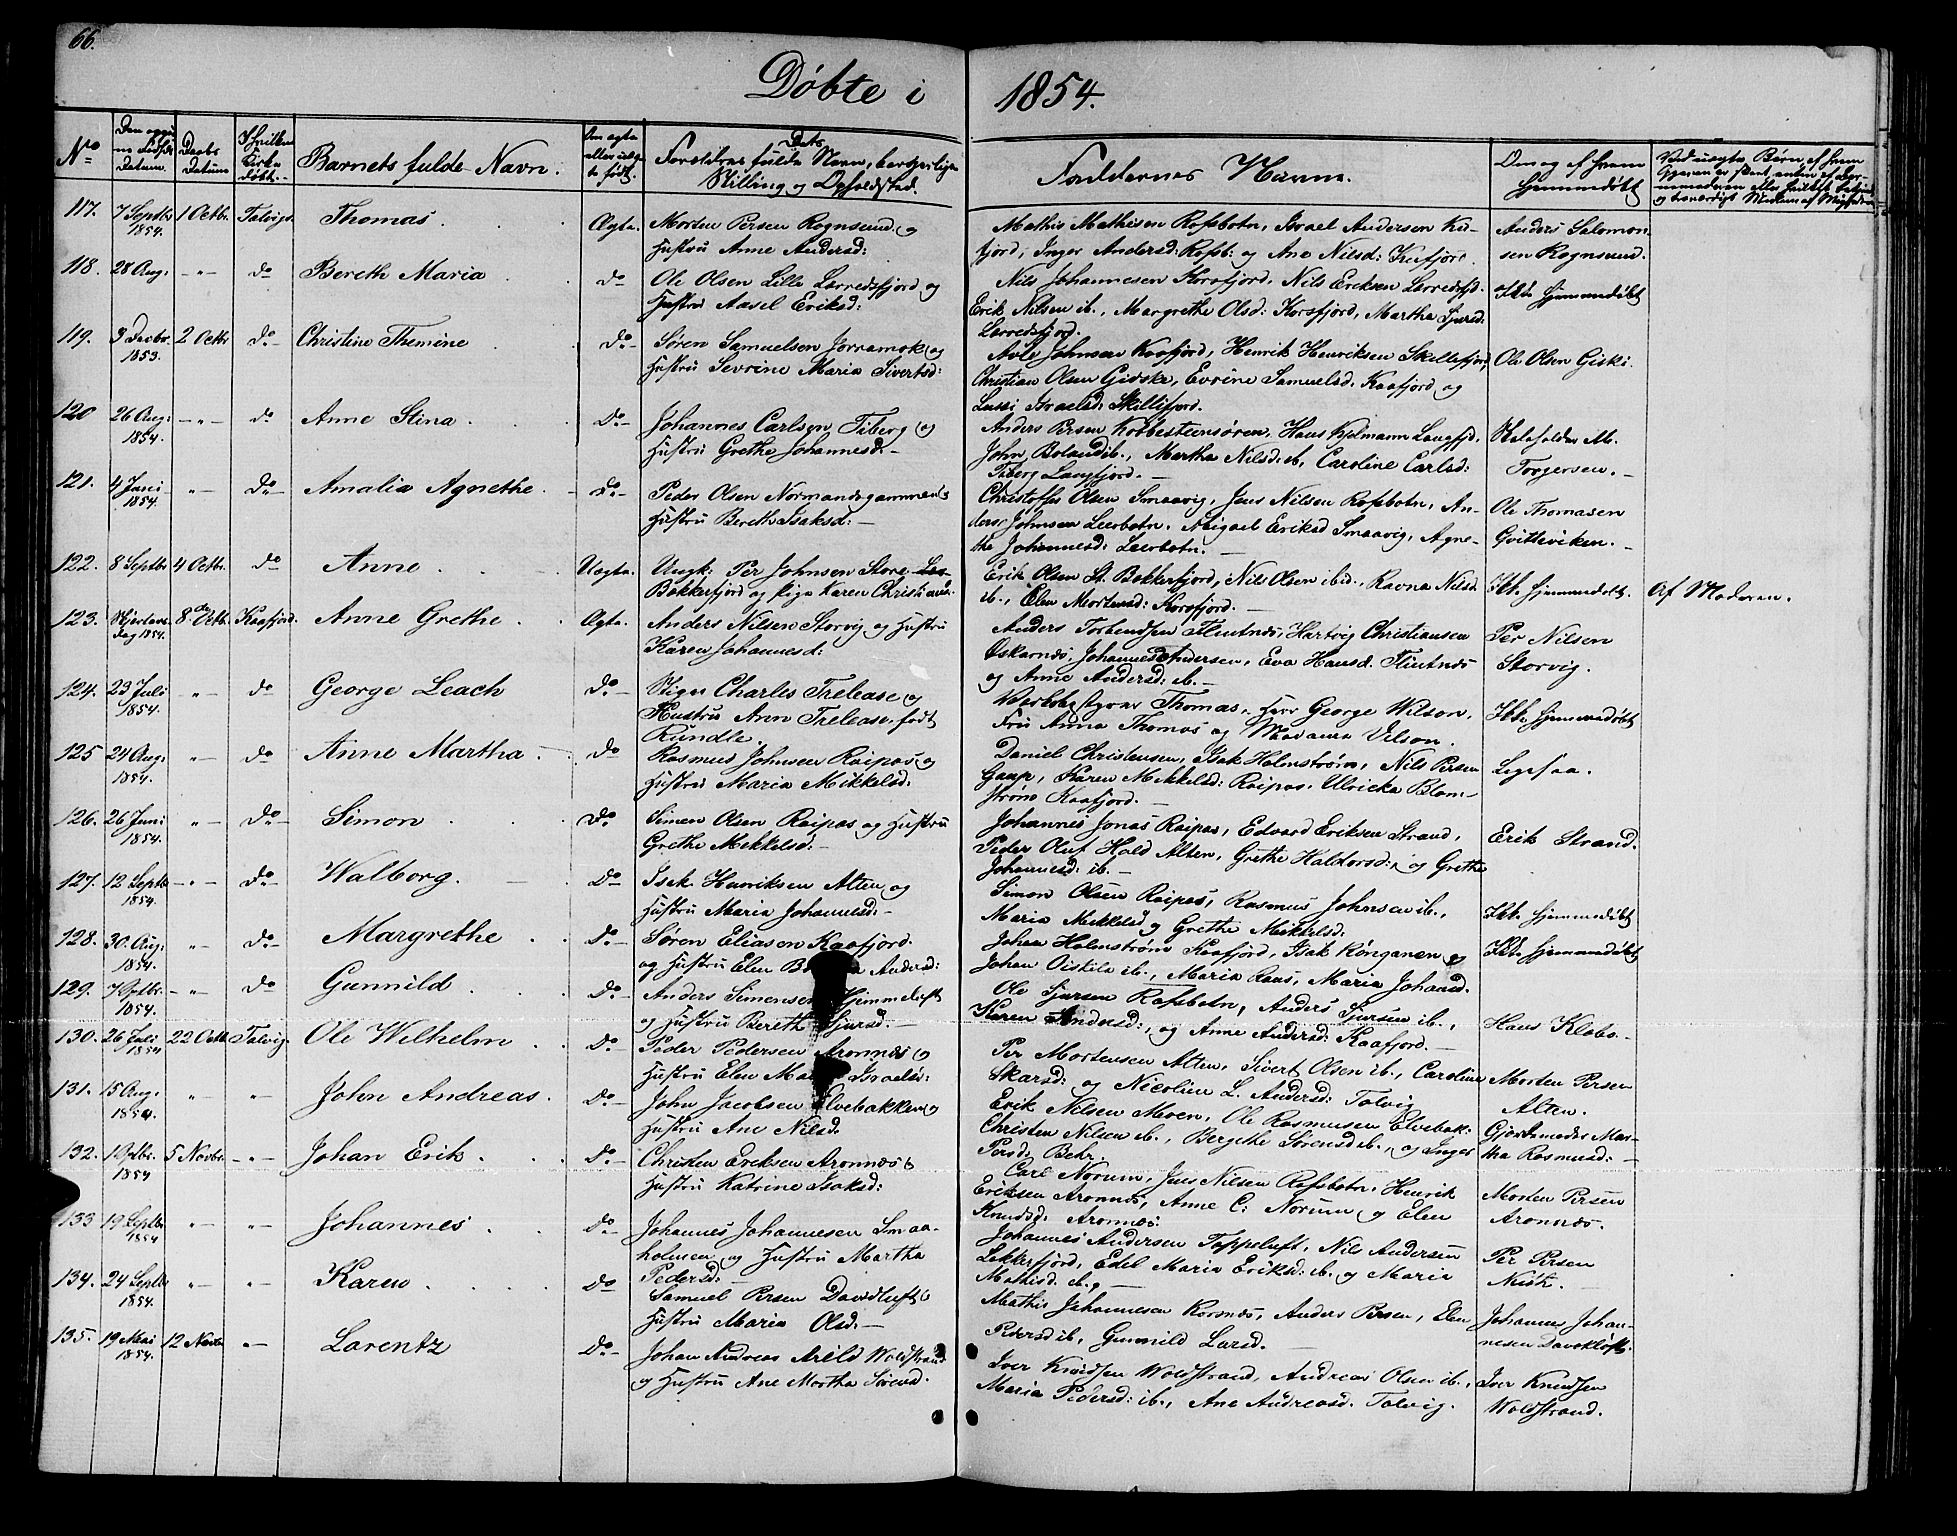 66.
Døbte i 1854.
No
Datum.
Daabs Datum
Barnets fulde Navn.
Forældrenes fulde Navn, borgerlige
Stilling og Opholdssted.
Faddernes Navne.
Om og af hvem
hjemmedøbt
117. 7 Septbr 1854. 1 Octbr. Talvig. Thomas. Ægte. Morten Persen Rognsund og
Hustru Anne Andersd:
Mathis Mathisen Rafsbotn, Israel Andersen
fjord, Inger Andersd: Rafsb: og Ane Nilsd:
Anders Salomon-
sen Rognsund.
118. 28 Aug: -"- do Bereth Maria do Ole Olsen Lille Lerredsfjord og
Hustru Aasel Eriksd:
Nils Johannesen Korsfjord, Nils Eriksen Lerredsfjd.
Erik Nilsen ib., Margrethe Olsd: Korsfjord, Martha Sjursd:
Lerredsfjord.
Ikke hjemmedøbt
119. 3 Decbr. 1853. 2 Octbr do Christine Themine Do Søren Samuelsen Jorramok og
Hustru Sevrine Maria Sivertsd:
Johnsen Kaafjord, Henrik Henriksen Skillefjord,
Christian Olsen Gidske, Evrine Samuelsd. Kaafjord og
Lussi Israelsd: Skillifjord.
Ole Olsen Giski.
120 26 Aug: 1854. -"- do Anne Stina. Do Johannes Carlsen Tiberg og
Hustru Grethe Johannesd:
Anders Persen Kobbesteensøren, Hans Kjelmann Langfjd.
John Boland ib., Martha Nilsd: ib, Caroline Carlsd:
Tiberg Langfjord.
M.
Torgersen.
121. 4 Juni 1854. " Do Amalia Agnethe. Do Peder Olsen Normandsgammen &
Hustru Bereth Isaksd:
Christoffer Olsen Smaavig, Jens Nilsen Rafsbotn, An-
ders Johnsen Leerbotn, Abigael Eriksd Smaavig, Agne-
the Johannesd: Leerbotn.
Ole Thomasen
Qvitteviken.
122. 8 Septbr 4 Octbr. do Anne. Uægte. Ungk: Per Johnsen Store
Bekkerfjord og Pige Karen
Erik Olsen St. Bekkerfjord, Nils Olsen ibid., Ravna Nilsd:
ib., Elen Mortensd: Korsfjord.
Ikke hjemmedøbt.
Af Moderen.
123. dag 1854. 8de Octbr. Kaafjord. Anne Grethe. Ægte. Anders Nilsen Storvig og Hustru
Karen Johannesd:
Anders Torbendsen Flintnæs, Hartvig Christiansen
Oskarnæs, Johannes Andersen, Eva Hansd. Flintnæs
og Anne Andersd: ib.
Per Nilsen
Storvig.
124. 23 Juli 1854. " do George Leach Do Stiger Charles Trelease og
Hustru Ann Trelease, født
Rundle.
Thomas, Herr George Wilson,
Fru Anna Thomas og Madame Velson.
Ikke hjemmedøbt
125 24 Aug: 1854. " do Anne Martha. Do Rasmus Johnsen Raipas og
Hustru Maria Mikkelsd:
Daniel Christensen, Isak Holmstrøm, Nils Persen
Gaup, Karen Mikkelsd: Raipas, Ulricka Blom-
strøm Kaafjord.
Ligesaa.
126. 26 Juni 1854. " Do Simon. Do Simen Olsen Raipas og Hustru
Grethe Mikkelsd:
Johannes Jonas Raipas, Edvard Eriksen Strand,
Peder Oluf Hald Alten, Grethe Haldorsd:, og Grethe
Johannesd: ib.
Erik Strand.
127. 12 Septb 1854. -"- Do Walborg. Do Isak Henriksen Alten og
Hustru Maria Johannesd:
Simon Olsen Raipas, Rasmus Johnsen ib.,
Maria Mikkelsd og Grethe Mikkelsd:
Ikke hjemmedøbt
128. 30. Aug: 1854. " Do Margrethe. Do Søren Eliasen Kaafjord.
og Hustru Elen Andersd:
Johan Holmstrøm Kaafjord, Isak Könganen og
Johan Oiskila ib., Maria Raus, Maria Johansd.
Ikke hjemmedøbt
129. 7 Octbr. 1854. -"- Do Gunnild. Do Anders Simensen Himmeluft
og Hustru Bereth Sjursd.
Ole Sjursen Rafsbotn, Anders Sjursen ib.,
Karen Andersd:, og Anne Andersd: Kaafjord.
Hans Klæbo.
130. 26 Juli 1854 22 Octb. Talvig. Ole Wilhelm. Do Peder Pedersen Aronnæs og
Hustru Elen Israelsd:
Per Mortensen Alten, Sivert Olsen ib., Caroline
Skarsd: og Nicoline L. Andersd: Talvig
Morten Persen
Alten.
131. 15 Aug: 1854. " " John Andreas. Do John Jacobsen Elvebakken og
Hustru Ane Nilsd.
Erik Nilsen Moen, Ole Rasmusen Elvebak:
Christen Nilsen ib., Bergithe Sørensd ib., og Inger
Persd: Behr.
Gjordemoder Mar-
tha Rasmusd:
132. 1 Octbr. 1854 5 Novbr. -"- Johan Erik. Do Christen Eriksen Aronnæs &
Hustru Katrine Isaksd:
Carl Norum, Jens Nilsen Rafsbotn, Henrik
Eriksen Aronnæs, Anne C: Norum og Elen
Knudsd: Aronnæs.
Morten Persen
Aronnæs.
133 19 Septbr 1854 " " Johannes. Do Johannes Johannesen Smaa-
holmen, og Hustru Martha
Pedersd:
Johannes Andersen Toppeluft, Nils Andersen
Lekkerfjord, Edel Maria Eriksd: ib. og Maria
Mathisd: ib.,
Per Persen
134. 24 Septbr 1854. " " Karen. Do Samuel Persen Davidluft &
Hustru Maria Olsd:
Mathis Johannesen Kornæs, Anders Persen, Elen
Pedersd ib., Gunnild Larsd.
Johannes Johan-
nesen
135. 19 Mai 1854. 12 Novbr -"- Larentz Do Johan Andreas Arild Woldstrand
og Hustru Ane Martha Sørensd.
Iver Knudsen Woldstrand, Andreas Olsen ib.,
Maria Pedersd: ib., Ane Andreasd. Talvig.
Iver Knudsen
Woldstrand.